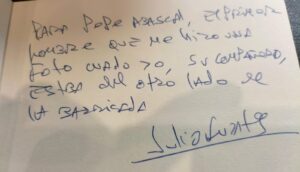 PARA PEPE ABASCAL, EL PRIMER
HOMBRE QUE ME HIZO UNA
FOTO CUANDO YO, SU COMPAÑERO,
ESTABA DEL OTRO LADO DE
LA BARRICADA
Julio Fuentes